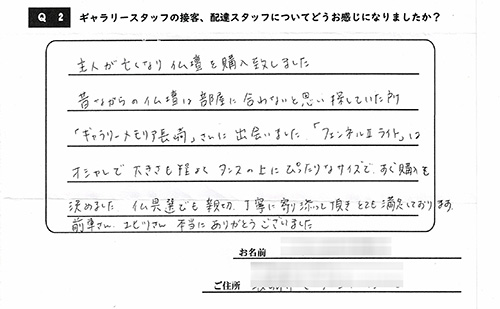 Q 2 ギャラリースタッフの接客、配達スタッフについてどうお感じになりましたか？
主人が亡くなり 仏壇を購入致しました
昔ながらの仏壇は部屋に合わないと思い 探していた所
「ギャラリーメモリア長崎」さんに 出会いました 「フェンネルⅡライト」は
オシャレで 大きさも程よく タンスの上にぴったりなサイズで、すぐ購入を
決めました 仏具選びも 親切、丁寧に寄り添って頂き とても満足しております。
さん、エビリさん 本当にありがとうございました
お名前
ご住所